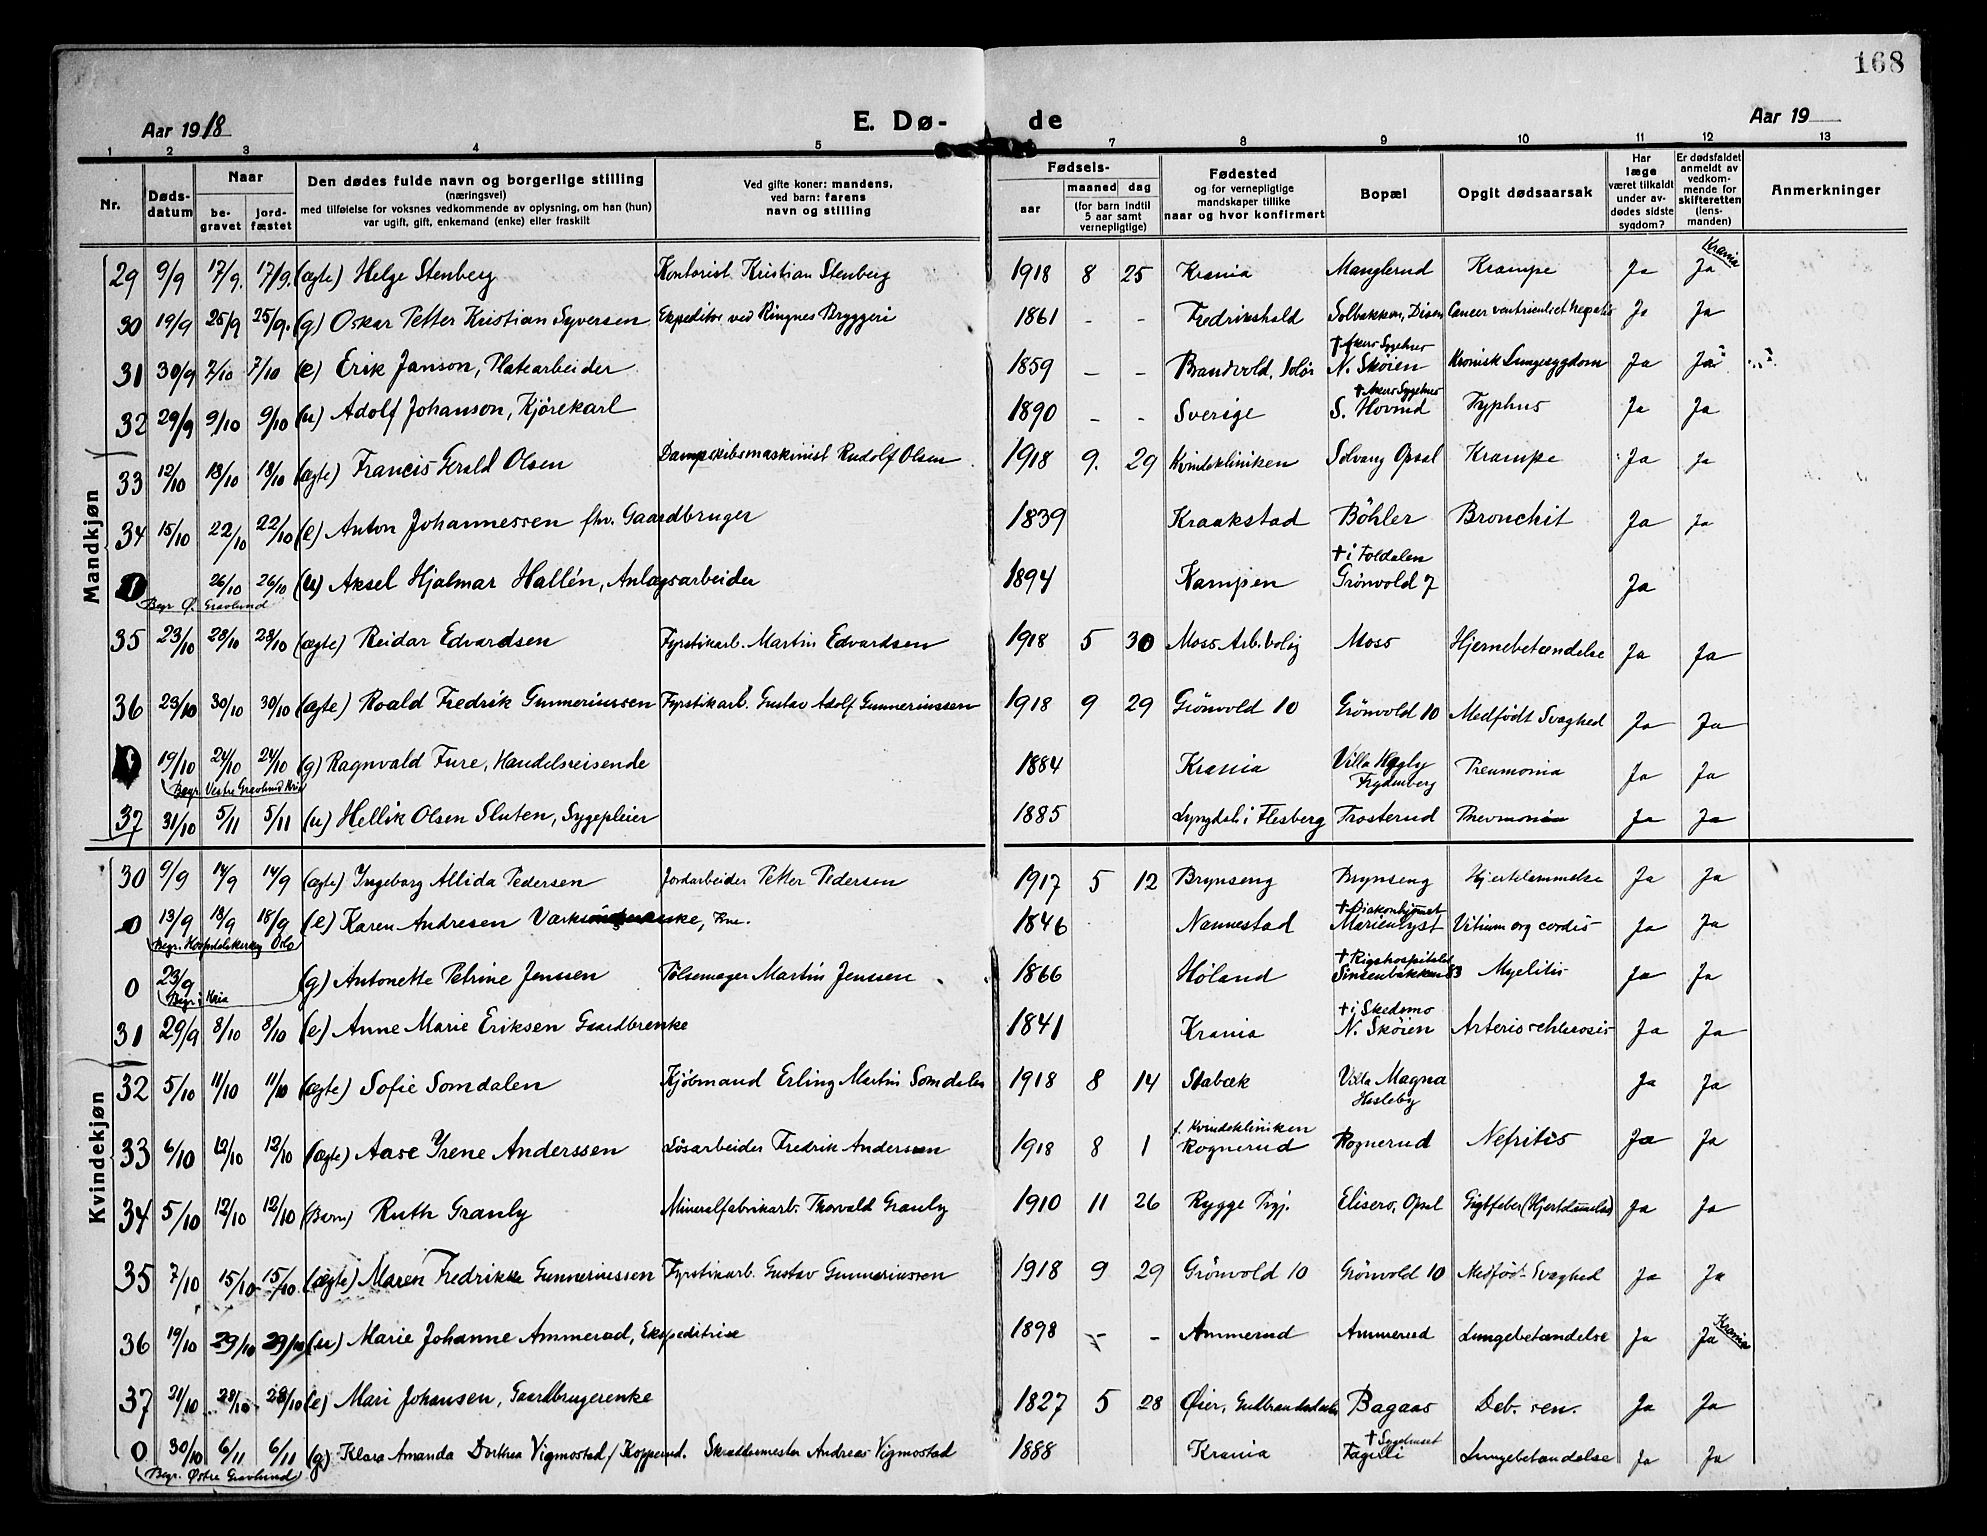 168
Aar 1918
E. Dø-
de
Aar 19
1 2 3 4 5 7 8 9 10 11 12 13
Nr.
Døds-
datum
Naar
be-
gravet
jord-
fæstet
Den dødes fulde navn og borgerlige stilling
(næringsvei)
med tilføielse for voksnes vedkommende av oplysning, om han (hun)
var ugift, gift, enkemand (enke) eller fraskilt
Ved gifte koner: mandens,
ved barn: farens
navn og stilling
Fødsels-
aar
maaned dag
(for barn indtil
5 aar samt
vernepligtige)
Fødested
og for vernepligtige
mandskaper tillike
naar og hvor konfirmert
Bopæl
Opgit dødsaarsak
Har
læge
været tilkaldt
under av-
dødes sidste
sygdom?
Er dødsfaldet
anmeldt av
vedkom-
mende for
skifteretten
(lens-
manden)
Anmerkninger
Mandkjøn
Krania
29 9/9 17/9. 17/9. (ægte) Helge Stenberg Kontorist. Kristian Stenberg 1918 8 25 Krania Manglerud Krampe Ja Ja
30 19/9 25/9 25/9. (g) Oskar Petter Kristian Syversen Ekpeditør ved Ringnes Bryggeri 1861 - - Fredrikshald Solbakken, Disen Cancer ventriculi et hepatis Ja Ja
† Akers Sygehus
31 30/9 7/10 7/10 (e) Erik Janson, Platearbeider 1859 - - Brandvold, Solør N. Skøien Kronisk Lungesygdom Ja Ja
† Akers Sygehus
32 29/9 9/10 9/10 (u) Adolf Johanson, Kjørekarl 1890 - - Sverige S. Hovind Typhus Ja Ja
33 12/10 18/10 18/10 (ægte) Francis Gerald Olsen Dampskibsmaskinist Rudolf Olsen 1918 9. 29 Kvindekliniken Solvang Opsal Krampe Ja Ja
34 15/10 22/10 22/10 (e) Anton Johannessen fhv. Gaardbruger 1839 Kraakstad Böhler Bronchit Ja Ja
† i Foldalen
0 26/10 26/10 (u) Aksel Hjalmar Hallén, Anlægsarbeider 1894 Kampen Grönvold 7 Ja
Begr. Ø. Gravlund
35 23/10 28/10 28/10 (ægte) Reidar Edvardsen Fyrstikarb. Martin Edvardsen 1918 5 30 Moss Arb.bolig Moss Hjernebetændelse Ja Ja
36 23/10 30/10 30/10 (ægte) Roald Fredrik Gunneriussen Fyrstikarb. Gustav Adolf Gunneriussen 1918 9 29 Grönvold 10 Grönvold 10 Medfødt Svaghed Ja Ja
0 19/10 24/10 24/10 (g) Ragnvald Fure, Handelsreisende 1884 Krania Villa Hygly Pneumonia Ja Ja
Begr. Vestre Gravlund Kria
Frydenberg
37 31/10 5/11 5/11 (u) Hellik Olsen Sluten, Sygepleier 1885 Lyngdal i Flesberg Trosterud Pnevmonia Ja Ja
Kvindekjøn
30 9/9 14/9 14/9 (ægte) Ingeborg Allida Pedersen Jordarbeider Petter Pedersen 1917 5 12 Brynseng Brynseng Hjertelammelse Ja Ja
† Diakonhjemmet
0 13/9 18/9 18/9 (e) Karen Andresen 1846 Nannestad Marienlyst Vitium org cordis Ja Ja
Begr. Hospitalskirkeg Oslo
† Rigshospitalet
0 23/9 (g) Antonette Petrine Jenssen Pølsemager Martin Jenssen 1866 Høland Sinsenbakken 83 Myelitis Ja Ja
Begr. i Kria
† i Skedsmo
31 29/9 8/10 8/10 (e) Anne Marie Eriksen Gaardbrenke 1841 Krania N. Skøien Arterio schlerosis Ja Ja
32 5/10 11/10 11/10 (ægte) Sofie Somdalen Kjøbmand Erling Martin Somdalen 1918 8 14 Stabæk Villa Magna Ja Ja
Hasleby
f. Kvindekliniken
33 6/10 12/10 12/10 (ægte) Aase Irene Anderssen Løsarbeider Fredrik Andersen 1918 8 1 Rognerud Rognerud Nefritis Ja Ja
34 5/10 12/10 12/10 (Barn) Ruth Granly Mineralfabrikarb. Thorvald Granly 1910 11 26 Rygge Prgj. Elisero, Opsal Gigtfeber (Hjertelammelse) Ja Ja
35 7/10 15/10 15/10 (ægte) Maren Fredrikke Gunneriussen Fyrstikarb. Gustav Gunneriussen 1918 9 29 Grönvold 10 Grönvold 10 Medfødt Svaghed Ja Ja
Krania
36 19/10 29/10 29/10 (u) Marie Johanne Ammerud, Ekspeditrise 1898 - - Ammerud Ammerud Lungebetændelse Ja Ja
37 21/10 28/10 28/10 (e) Mari Johansen, Gaardbrugerenke 1827 5 28 Øier, Gudbrandsdalen Bagaas Deb. sen. Ja Ja
† Sygehuset
0 30/10 6/11 6/11 (g) Klara Amanda Dorthea Vigmostad f. Kopperud. Skræddermester Andreas Vigmostad 1888 Krania Fagerli Lungebetændelse Ja Ja
Begr. Østre Gravlund